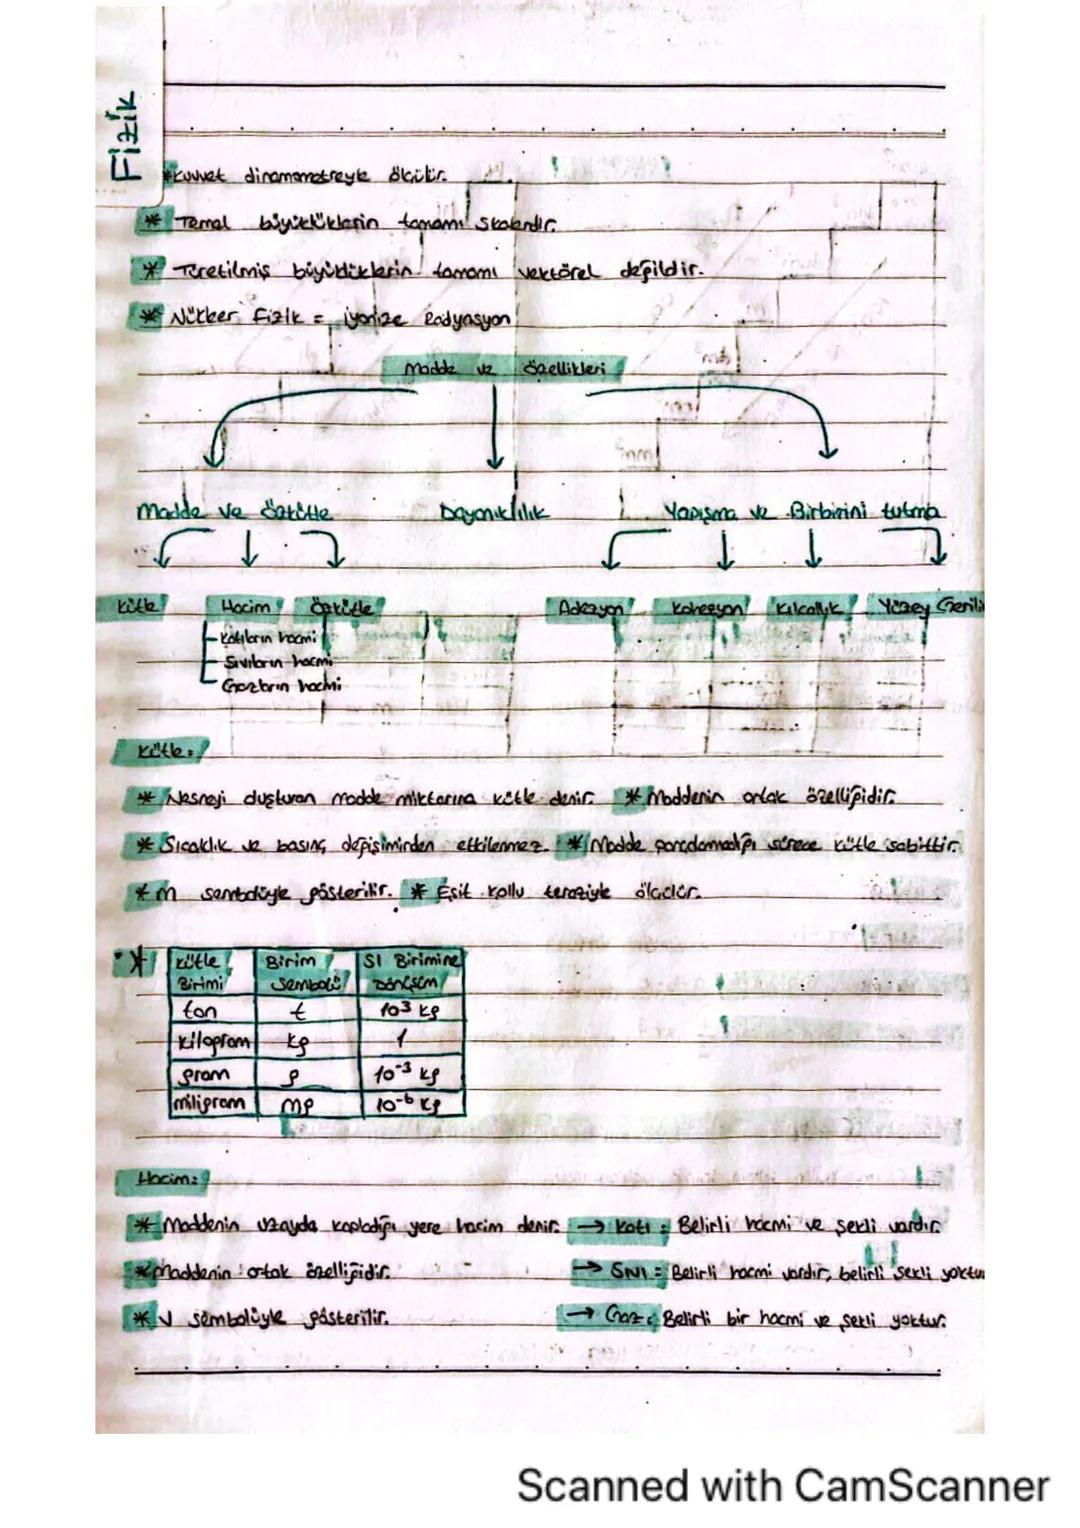 Fizik
*Kuvvet dinamometreyle ölçülür.
* Temel büyüklüklerin tamamı skalerdir.
* Türetilmiş büyüklüklerin tamamı vektörel değildir.
* Nükleer Fizik = iyonize Radyasyon
Madde ve özellikleri
Madde ve özkütle Dayanıklılık Yapışma ve Birbirini tutma
Kütle Hacim Özkütle Adezyon Kohezyon Kılcallık Yüzey Gerili
Katıların hacmi
Sıvıların hacmi
Gazların hacmi
Kütle:
* Nesneyi oluşturan madde miktarına kütle denir. * Maddenin ortak özelliğidir.
* Sıcaklık ve basınç değişiminden etkilenmez. * Madde parçalanmadığı sürece kütle sabittir.
* m sembolüyle gösterilir. * Eşit kollu teraziyle ölçülür.
* Kütle Birimi Birim Sembolü SI Birimine Dönüşüm
ton t 10³ kg
kilogram kg 1
gram g 10⁻³ kg
miligram mg 10⁻⁶ kg
Hacim:
* Maddenin uzayda kapladığı yere hacim denir. → Katı : Belirli hacmi ve şekli vardır.
* Maddenin ortak özelliğidir. → Sıvı = Belirli hacmi vardır, belirli şekli yoktu
* V sembolüyle gösterilir. → Gaz : Belirli bir hacmi ve şekli yoktur.
Scanned with CamScanner